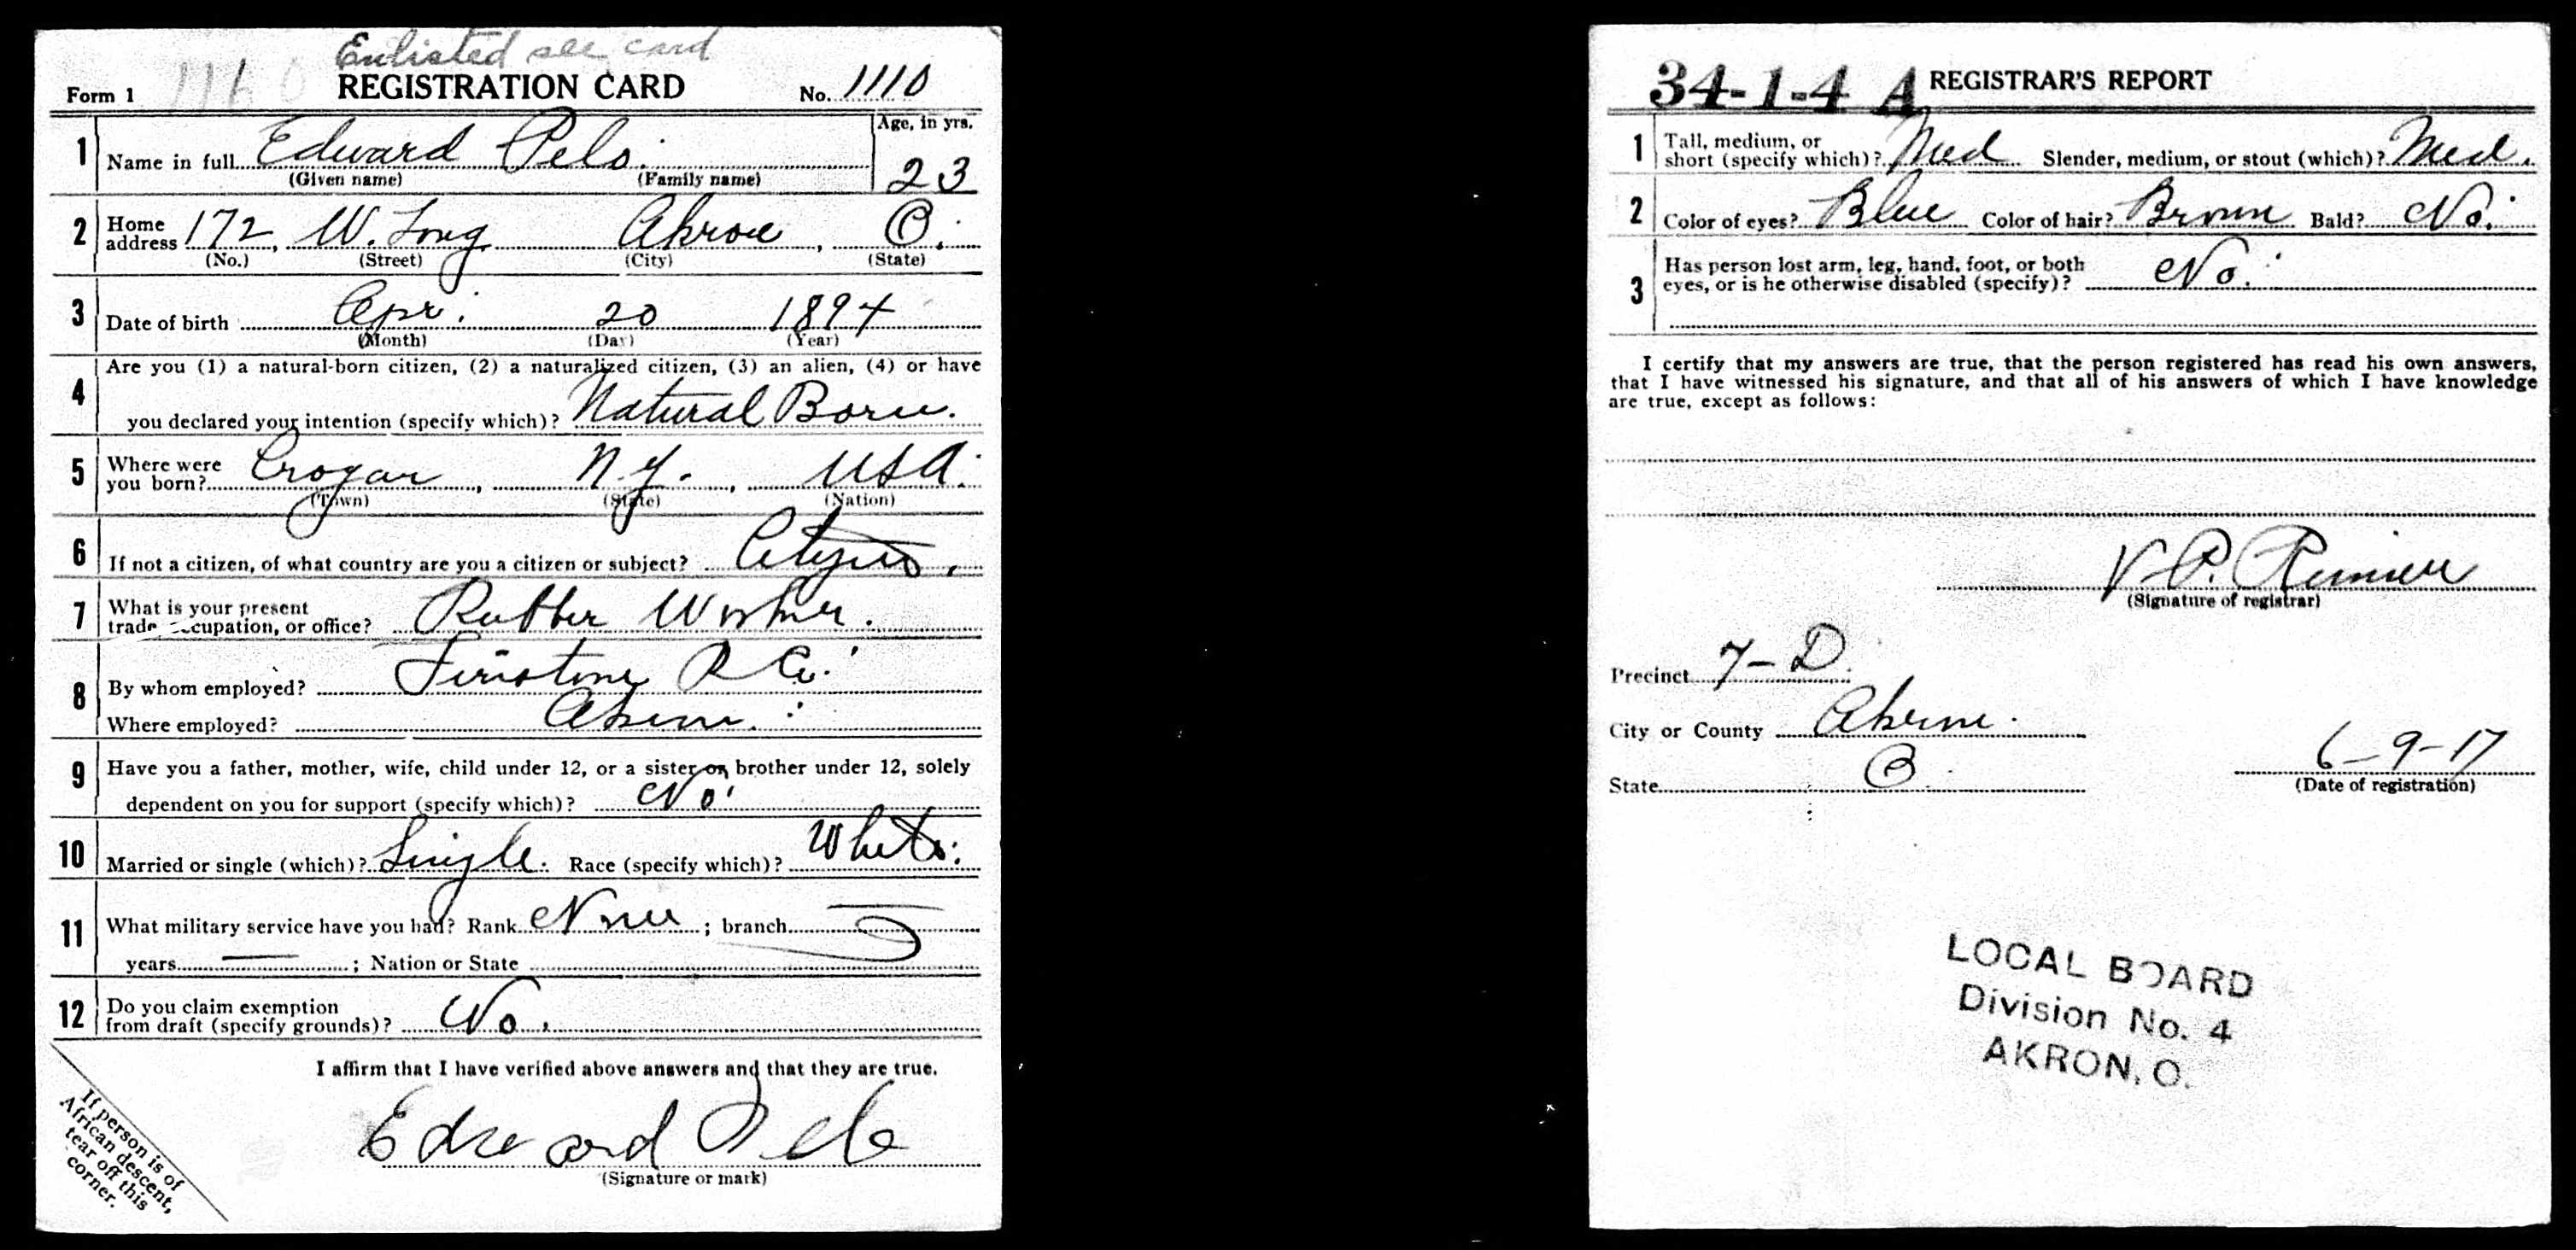 Enlisted see card
Form 1 1110 REGISTRATION CARD No. 1110
1 Name in full Edward Pelo. Age, in yrs. 23
(Given name) (Family name)
2 Home address 172, W. Long Akron, O.
(No.) (Street) (City) (State)
3 Date of birth Apr. 20 1894
(Month) (Day) (Year)
4 Are you (1) a natural-born citizen, (2) a naturalized citizen, (3) an alien, (4) or have
you declared your intention (specify which)? Natural Born.
5 Where were you born? Crogan, N.Y., USA.
(Town) (State) (Nation)
6 If not a citizen, of what country are you a citizen or subject?
7 What is your present trade, occupation, or office? Rubber Worker.
8 By whom employed? Firestone R Co.
Where employed? Akron.
9 Have you a father, mother, wife, child under 12, or a sister or brother under 12, solely
dependent on you for support (specify which)? No.
10 Married or single (which)? Single. Race (specify which)? White.
11 What military service have you had? Rank None; branch
years —; Nation or State
12 Do you claim exemption
from draft (specify grounds)? No.
I affirm that I have verified above answers and that they are true.
Edward Pelo
(Signature or mark)
If person is of
African descent,
tear off this
corner.
34-1-4 A REGISTRAR'S REPORT
1 Tall, medium, or
short (specify which)? Med Slender, medium, or stout (which)? Med.
2 Color of eyes? Blue Color of hair? Brown Bald? No.
3 Has person lost arm, leg, hand, foot, or both
eyes, or is he otherwise disabled (specify)? No.
I certify that my answers are true, that the person registered has read his own answers,
that I have witnessed his signature, and that all of his answers of which I have knowledge
are true, except as follows:
V. P.
(Signature of registrar)
Precinct 7-D.
City or County Akron.
State O. 6-9-17
(Date of registration)
LOCAL BOARD
Division No. 4
AKRON, O.